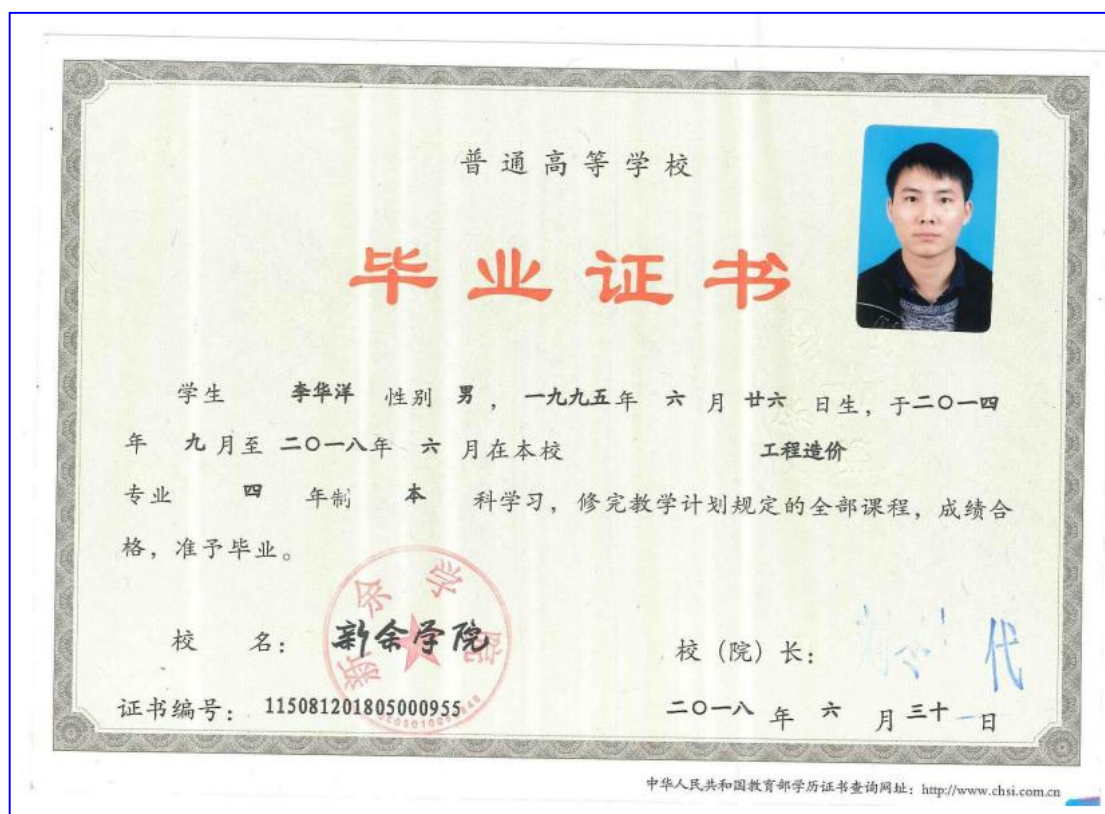 普通高等学校
毕业证书
学生 李华洋 性别 男，一九九五年 六 月 廿六 日生，于二〇一四
年 九月至 二〇一八年 六 月在本校 工程造价
专业 四 年制 本 科学习，修完教学计划规定的全部课程，成绩合
格，准予毕业。
新余学院
校 名： 新余学院
校（院）长： 代
证书编号： 115081201805000955
二〇一八 年 六 月 三十 日
中华人民共和国教育部学历证书查询网址：http://www.chsi.com.cn